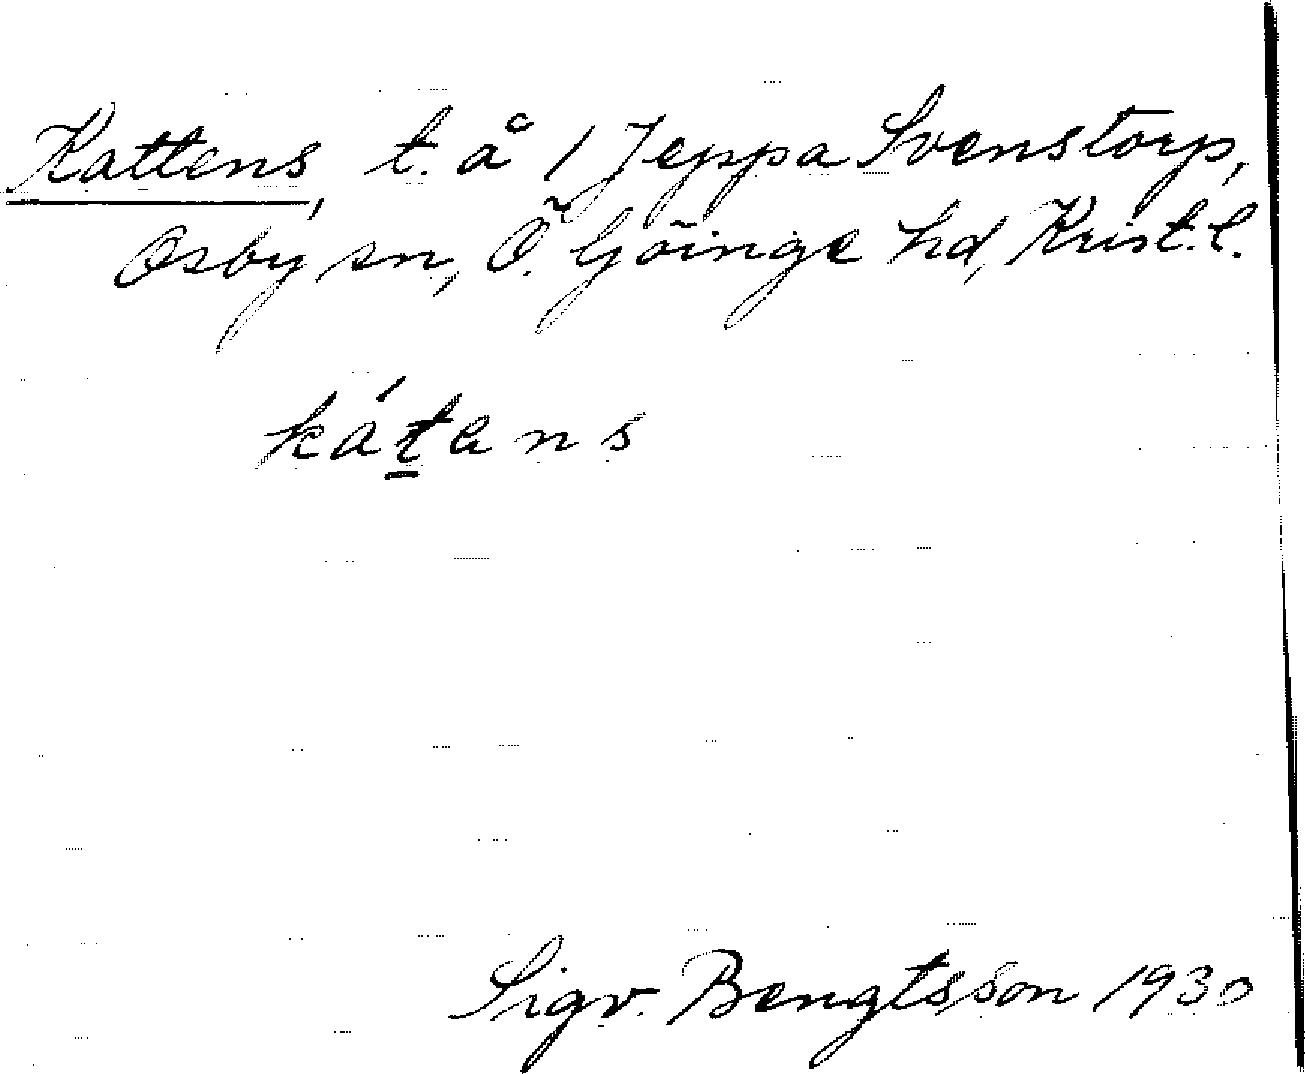 Kattens, t. å 1 Jeppa Svenstorp,
Osby sn, Ö. Göinge hd, Krist. l.
kát̲ens
Sigv. Bengtsson 1930